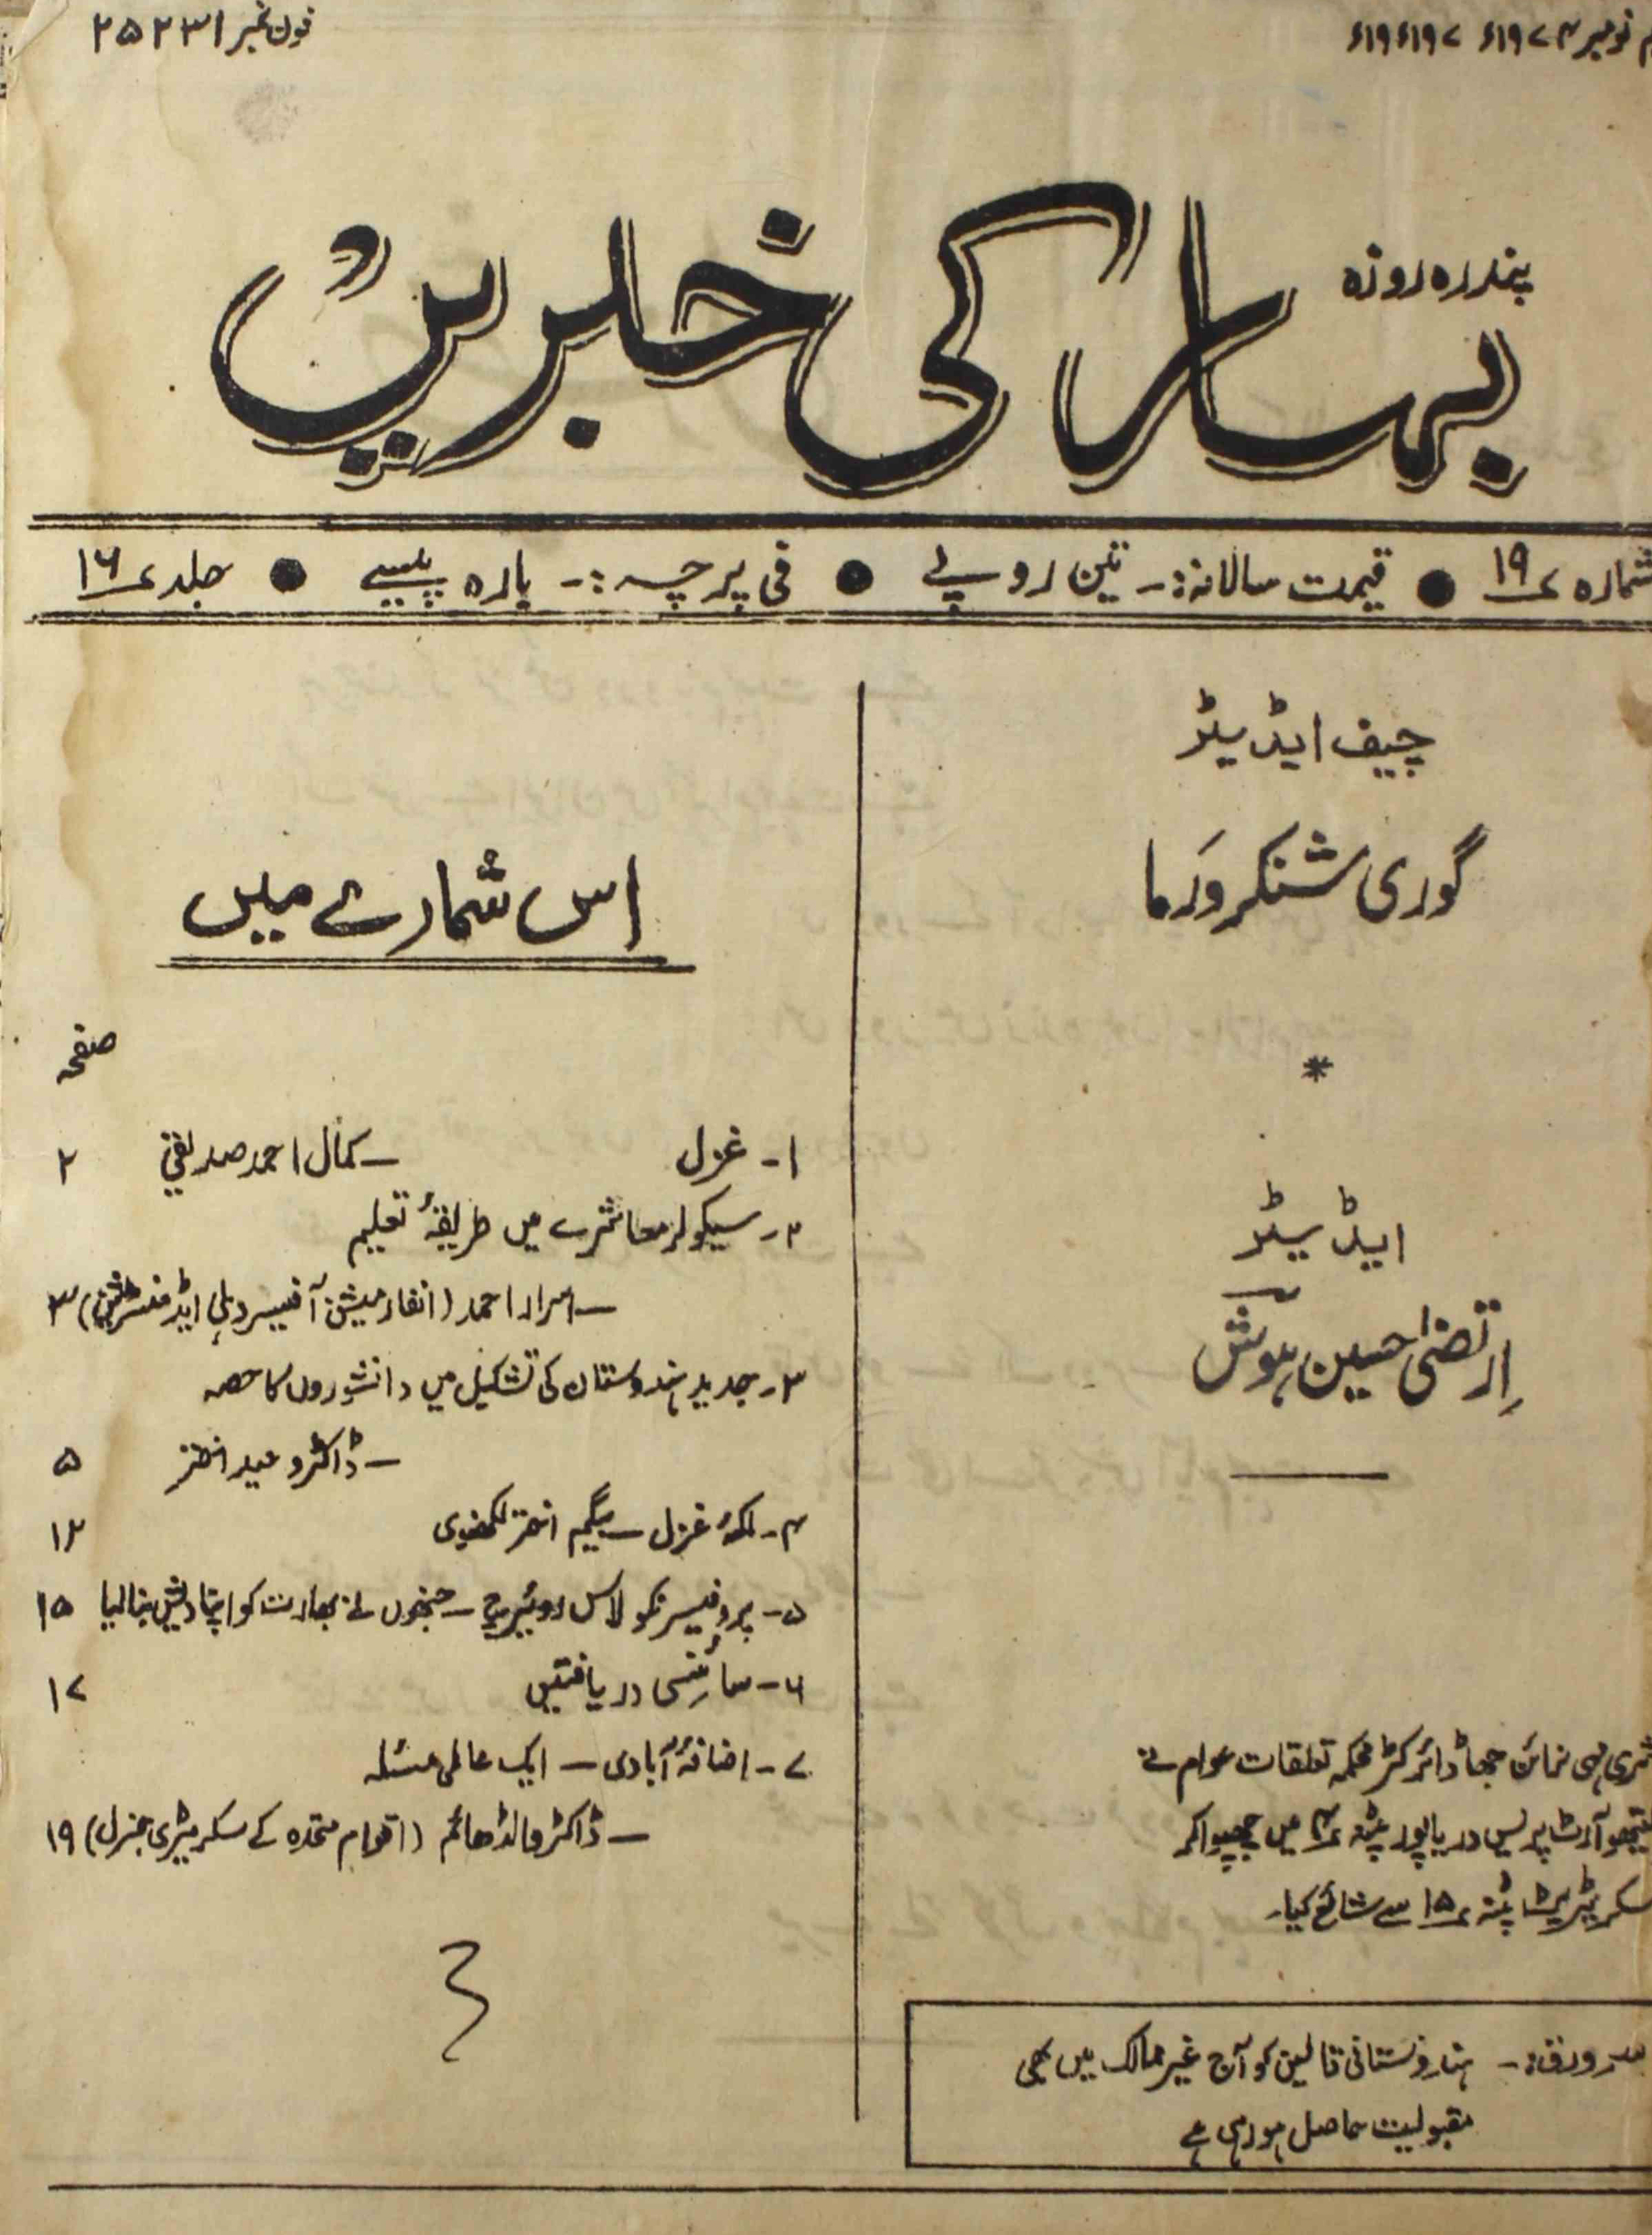 نومبر ۱۹۷۴ء
فون نمبر ۲۵۲۳۱
پندرہ روزہ
بہار کی خبریں
شمارہ ۱۹ ● قیمت سالانہ:۔ تین روپے ● فی پرچہ:۔ بارہ پیسے ● جلد ۱۶
چیف ایڈیٹر
گوری شنکر وَرما
*
ایڈیٹر
اِرتضیٰ حسین ہوش
نرائن جھا ڈائرکٹر محکمہ تعلقات عوام نے
آرٹ پریس دریاپور پٹنہ ۴ میں چھپوا کر
سکریٹریٹ پٹنہ ۱۵ سے شائع کیا۔
سرورق:۔ ہندوستانی قالین کو آج غیر ممالک میں بھی
مقبولیت حاصل ہو رہی ہے
اس شمارے میں
صفحہ
۱۔ غزل — کمال احمد صدیقی ۲
۲۔ سیکولر معاشرے میں طریقۂ تعلیم
— اسرار احمد (انفارمیشن آفیسر دہلی ایڈمنسٹریشن) ۳
۳۔ جدید ہندوستان کی تشکیل میں دانشوروں کا حصہ
— ڈاکٹر وحید اختر ۵
۴۔ ملکۂ غزل — بیگم اختر لکھنوی ۱۲
۵۔ پروفیسر نکولاس روئیرچ — جنہوں نے بھارت کو اپنا دیش بنا لیا ۱۵
۶۔ سائنسی دریافتیں ۱۷
۷۔ اضافۂ آبادی — ایک عالمی مسئلہ
— ڈاکٹر والڈھائم (اقوام متحدہ کے سکریٹری جنرل) ۱۹